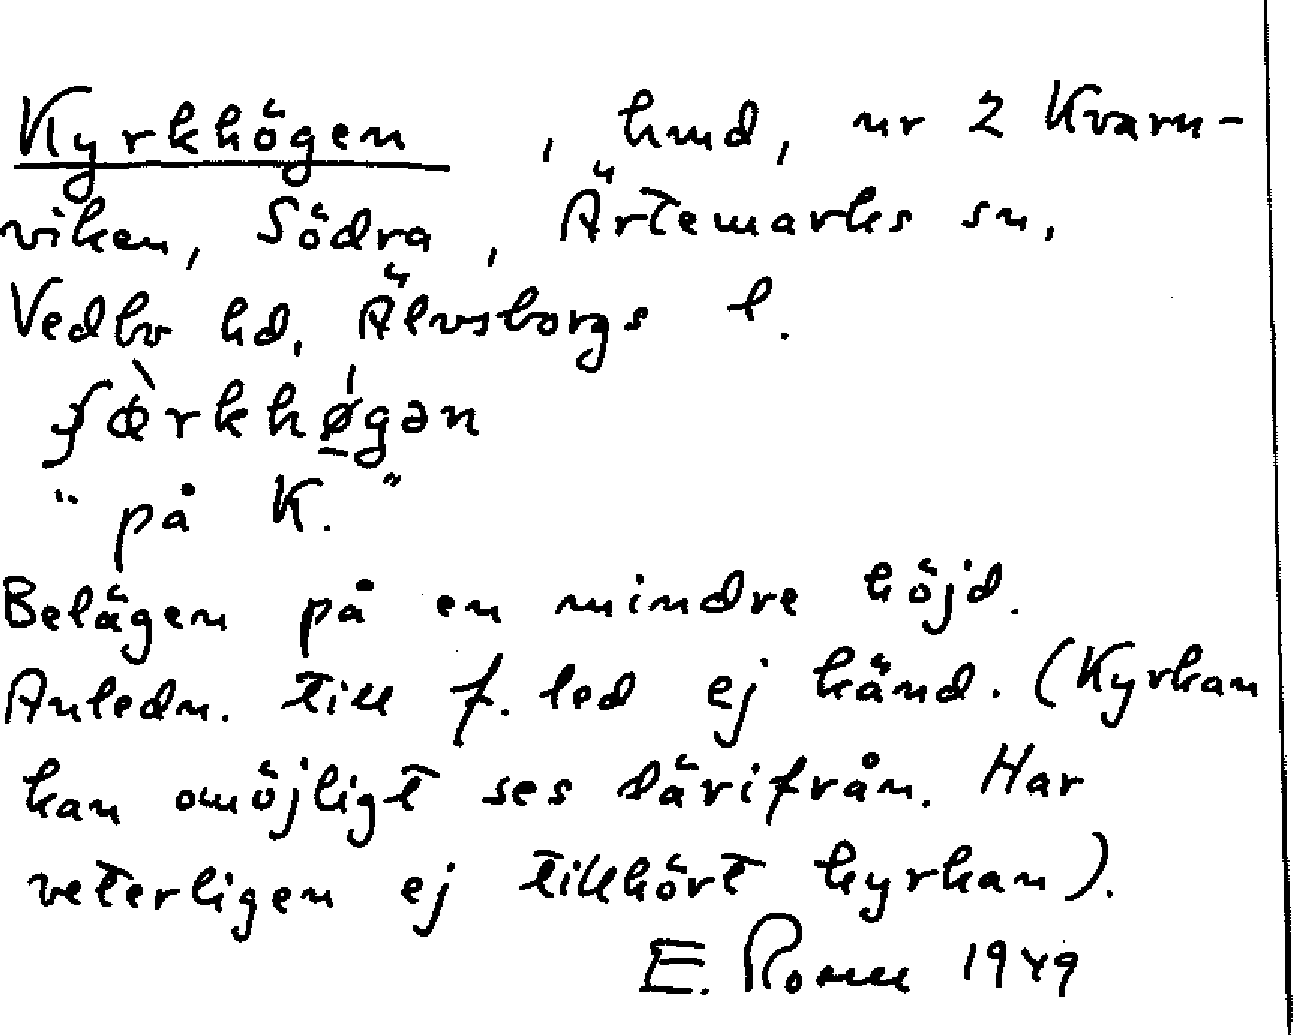 Kyrkhögen, hmd, nr 2 Kvarn-
viken, Södra, Ärtemarks sn,
Vedbo hd, Älvsborgs l.
"på K."
Belägen på en mindre höjd.
Anledn. till f. led ej känd. (Kyrkan
kan omöjligt ses därifrån. Har
veterligen ej tillhört kyrkan).
E. 1949